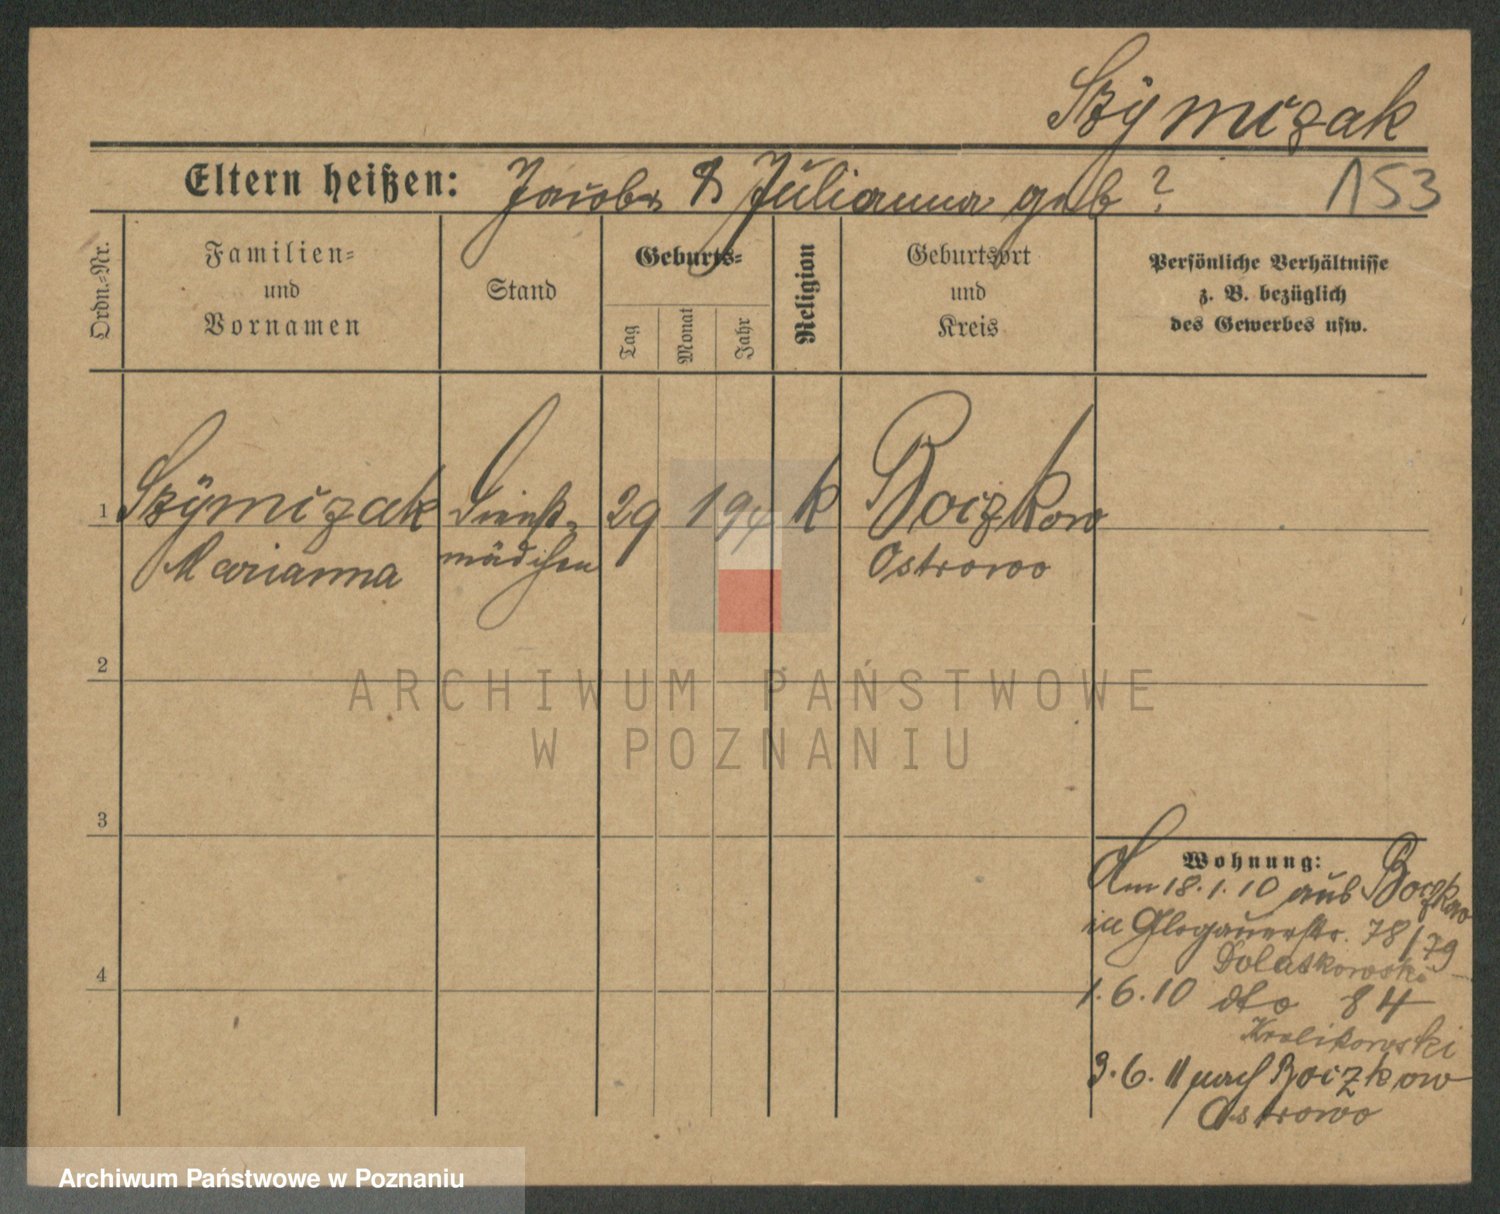 Szÿmczak
Eltern heißen: Jacob & Julianna geb ? 153
Ordn.=Nr.
Familien=
und
Vornamen
Stand
Geburts=
Tag
Monat
Jahr
Religion
Geburtsort
und
Kreis
Persönliche Verhältnisse
z. B. bezüglich
des Gewerbes usw.
1 Szÿmczak Dienst= 29 1 94 k Boczkow
Marianna mädchen Ostrowo
2
3
4
ARCHIWUM PAŃSTWOWE
W POZNANIU
Wohnung:
Am 18.1.10 aus Boczkow
in Glogauerstr. 78/79
Dolatkowski
1.6.10 dto 84
Kralikowski
3.6.11 nach Boczkow
Ostrowo
Archiwum Państwowe w Poznaniu